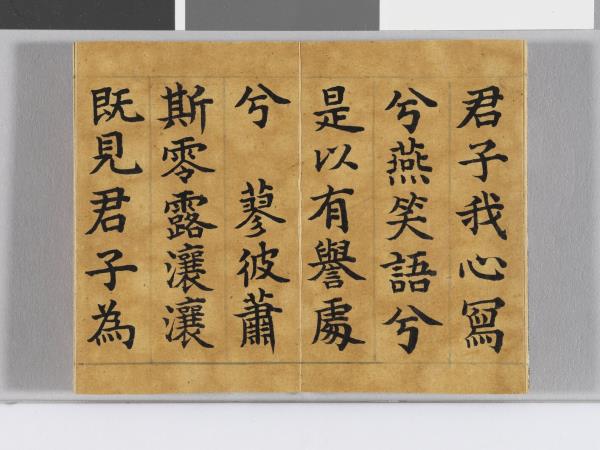 君子我心寫
兮燕笑語兮
是以有譽處
兮　蓼彼蕭
斯零露瀼瀼
既見君子為